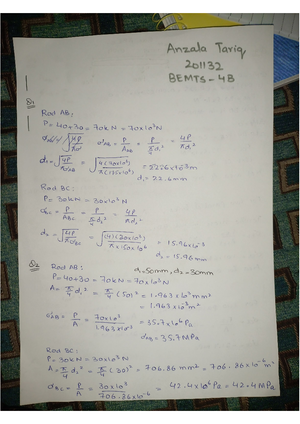 Anzala Tariq
201132
BEMTS - 4B
Q1
Rod AB:
P = 40+30 = 70kN = 70x10³N
σAB = P/AAB = P/(π/4 d₁²) = 4P/πd₁²
d₁ = √(4P/πσAB) = √(4(70x10³)/π(175x10⁶)) = 22.6x10⁻³m
d₁ = 22.6mm
Rod BC:
P = 30kN = 30x10³N
σBC = P/ABC = P/(π/4 d₂²) = 4P/πd₂²
d₂ = √(4P/πσBC) = √((4)(30x10³)/π x 150x10⁶) = 15.96x10⁻³
d₂ = 15.96mm
Q2
Rod AB: d₁ = 50mm, d₂ = 30mm
P = 40+30 = 70kN = 70x10³N
A = π/4 d₁² = π/4 (50)² = 1.963x10³mm²
= 1.963x10⁻³m²
σAB = P/A = 70x10³/1.963x10⁻³ = 35.7x10⁶Pa
σAB = 35.7MPa
Rod BC:
P = 30kN = 30x10³N
A = π/4 d₂² = π/4 (30)² = 706.86mm² = 706.86x10⁻⁶m²
σBC = P/A = 30x10³/706.86x10⁻⁶ = 42.4x10⁶Pa = 42.4MPa